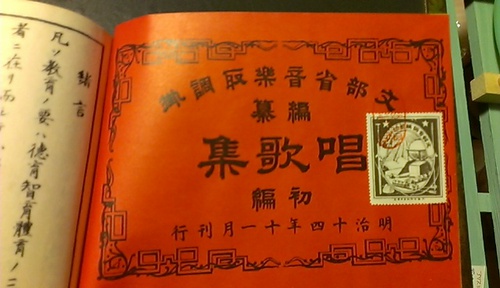 文部省音樂取調掛
編纂
唱歌集
初編
明治十四年十一月刊行
緒言
凡ソ教育ノ要ハ德育智育體育ノ
者ニ在リ而